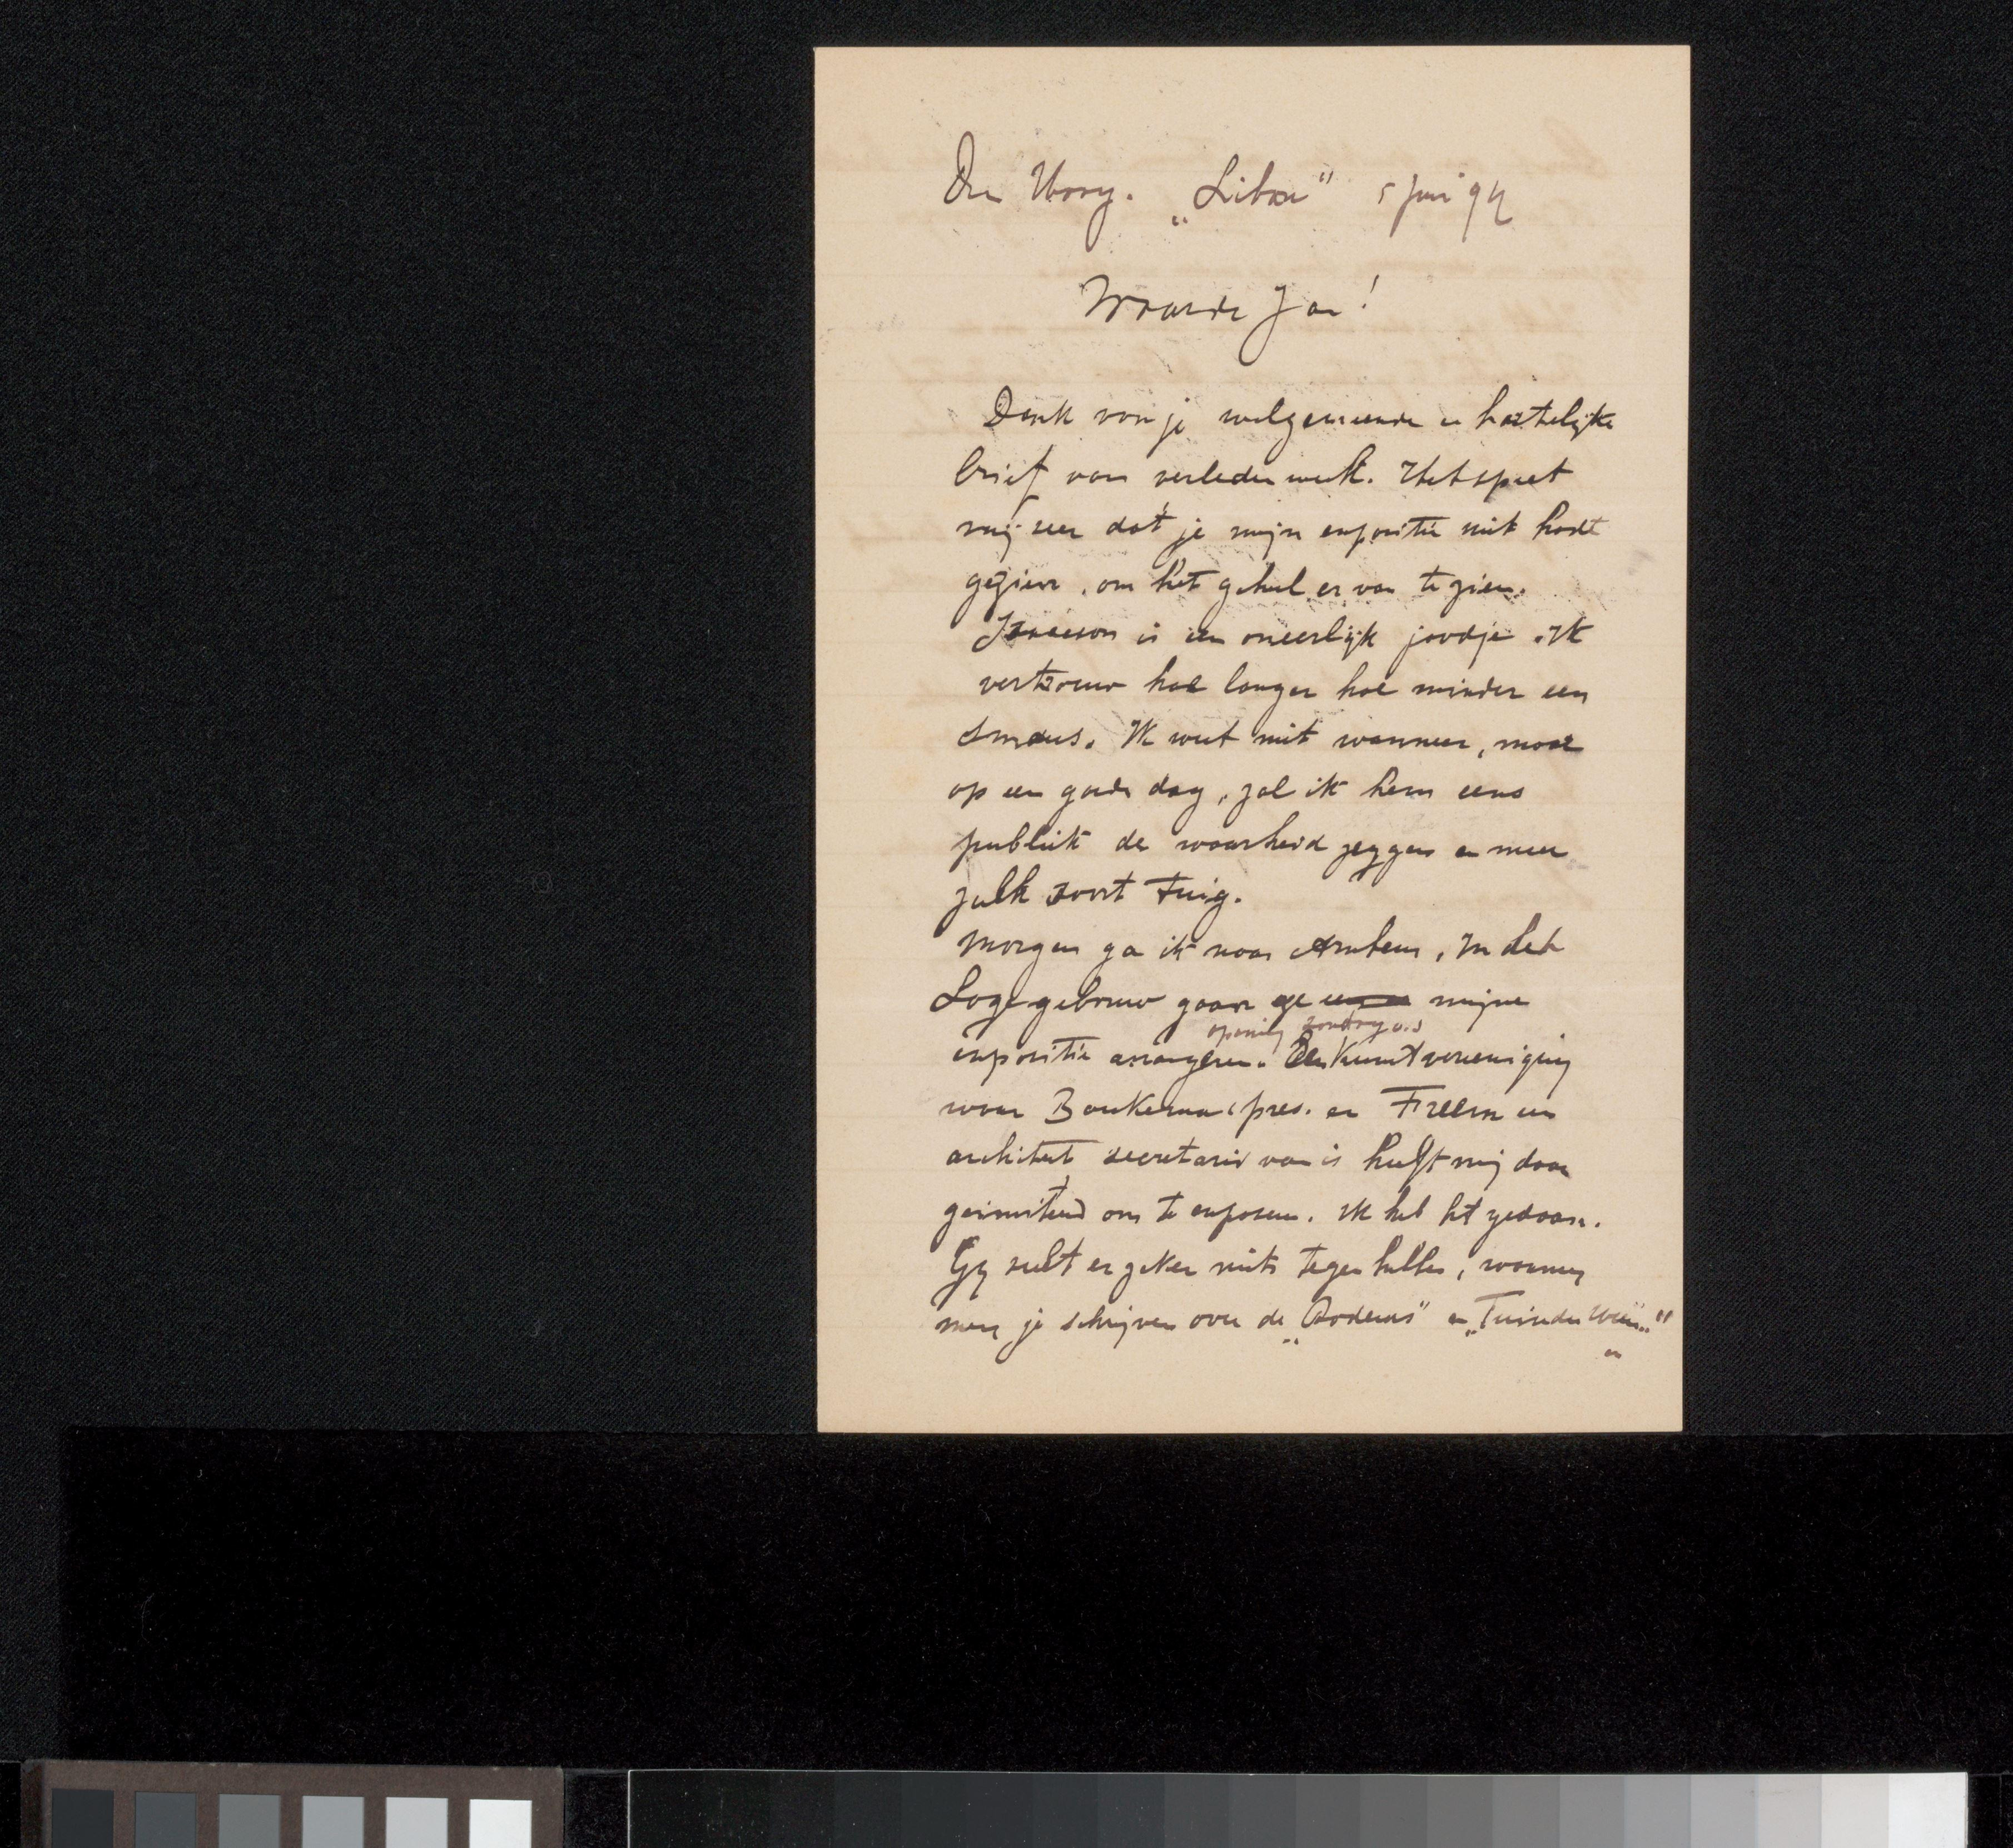 Den Haag. „Liban" 5 Juni 94
Waarde Jan!
Dank van je welgemeende en hartelijke
brief van verleden week. Het speet
mij zeer dat je mijn expositie niet hadt
gezien, om het geheel er van te zien.
Isaacson is een oneerlijk joodje. Ik
vertrouw hoe langer hoe minder een
smaus. Ik weet niet wanneer, maar
op een goede dag, zal ik hem eens
publiek de waarheid zeggen en meer
zulk soort tuig.
Morgen ga ik naar Arnhem, in het
Loge gebouw gaan we mijne
opening zondag a.s
expositie arrangeren. Een Kunstvereeniging
waar Boukema pres. en Freem een
architect secretaris van is heeft mij daar
geinviteerd om te exposeren. Ik heb het gedaan.
Gij zult er zeker niets tegen hebben, wanneer
men je schrijven over de „Rodeurs" en „Tuin der Weeën"
en